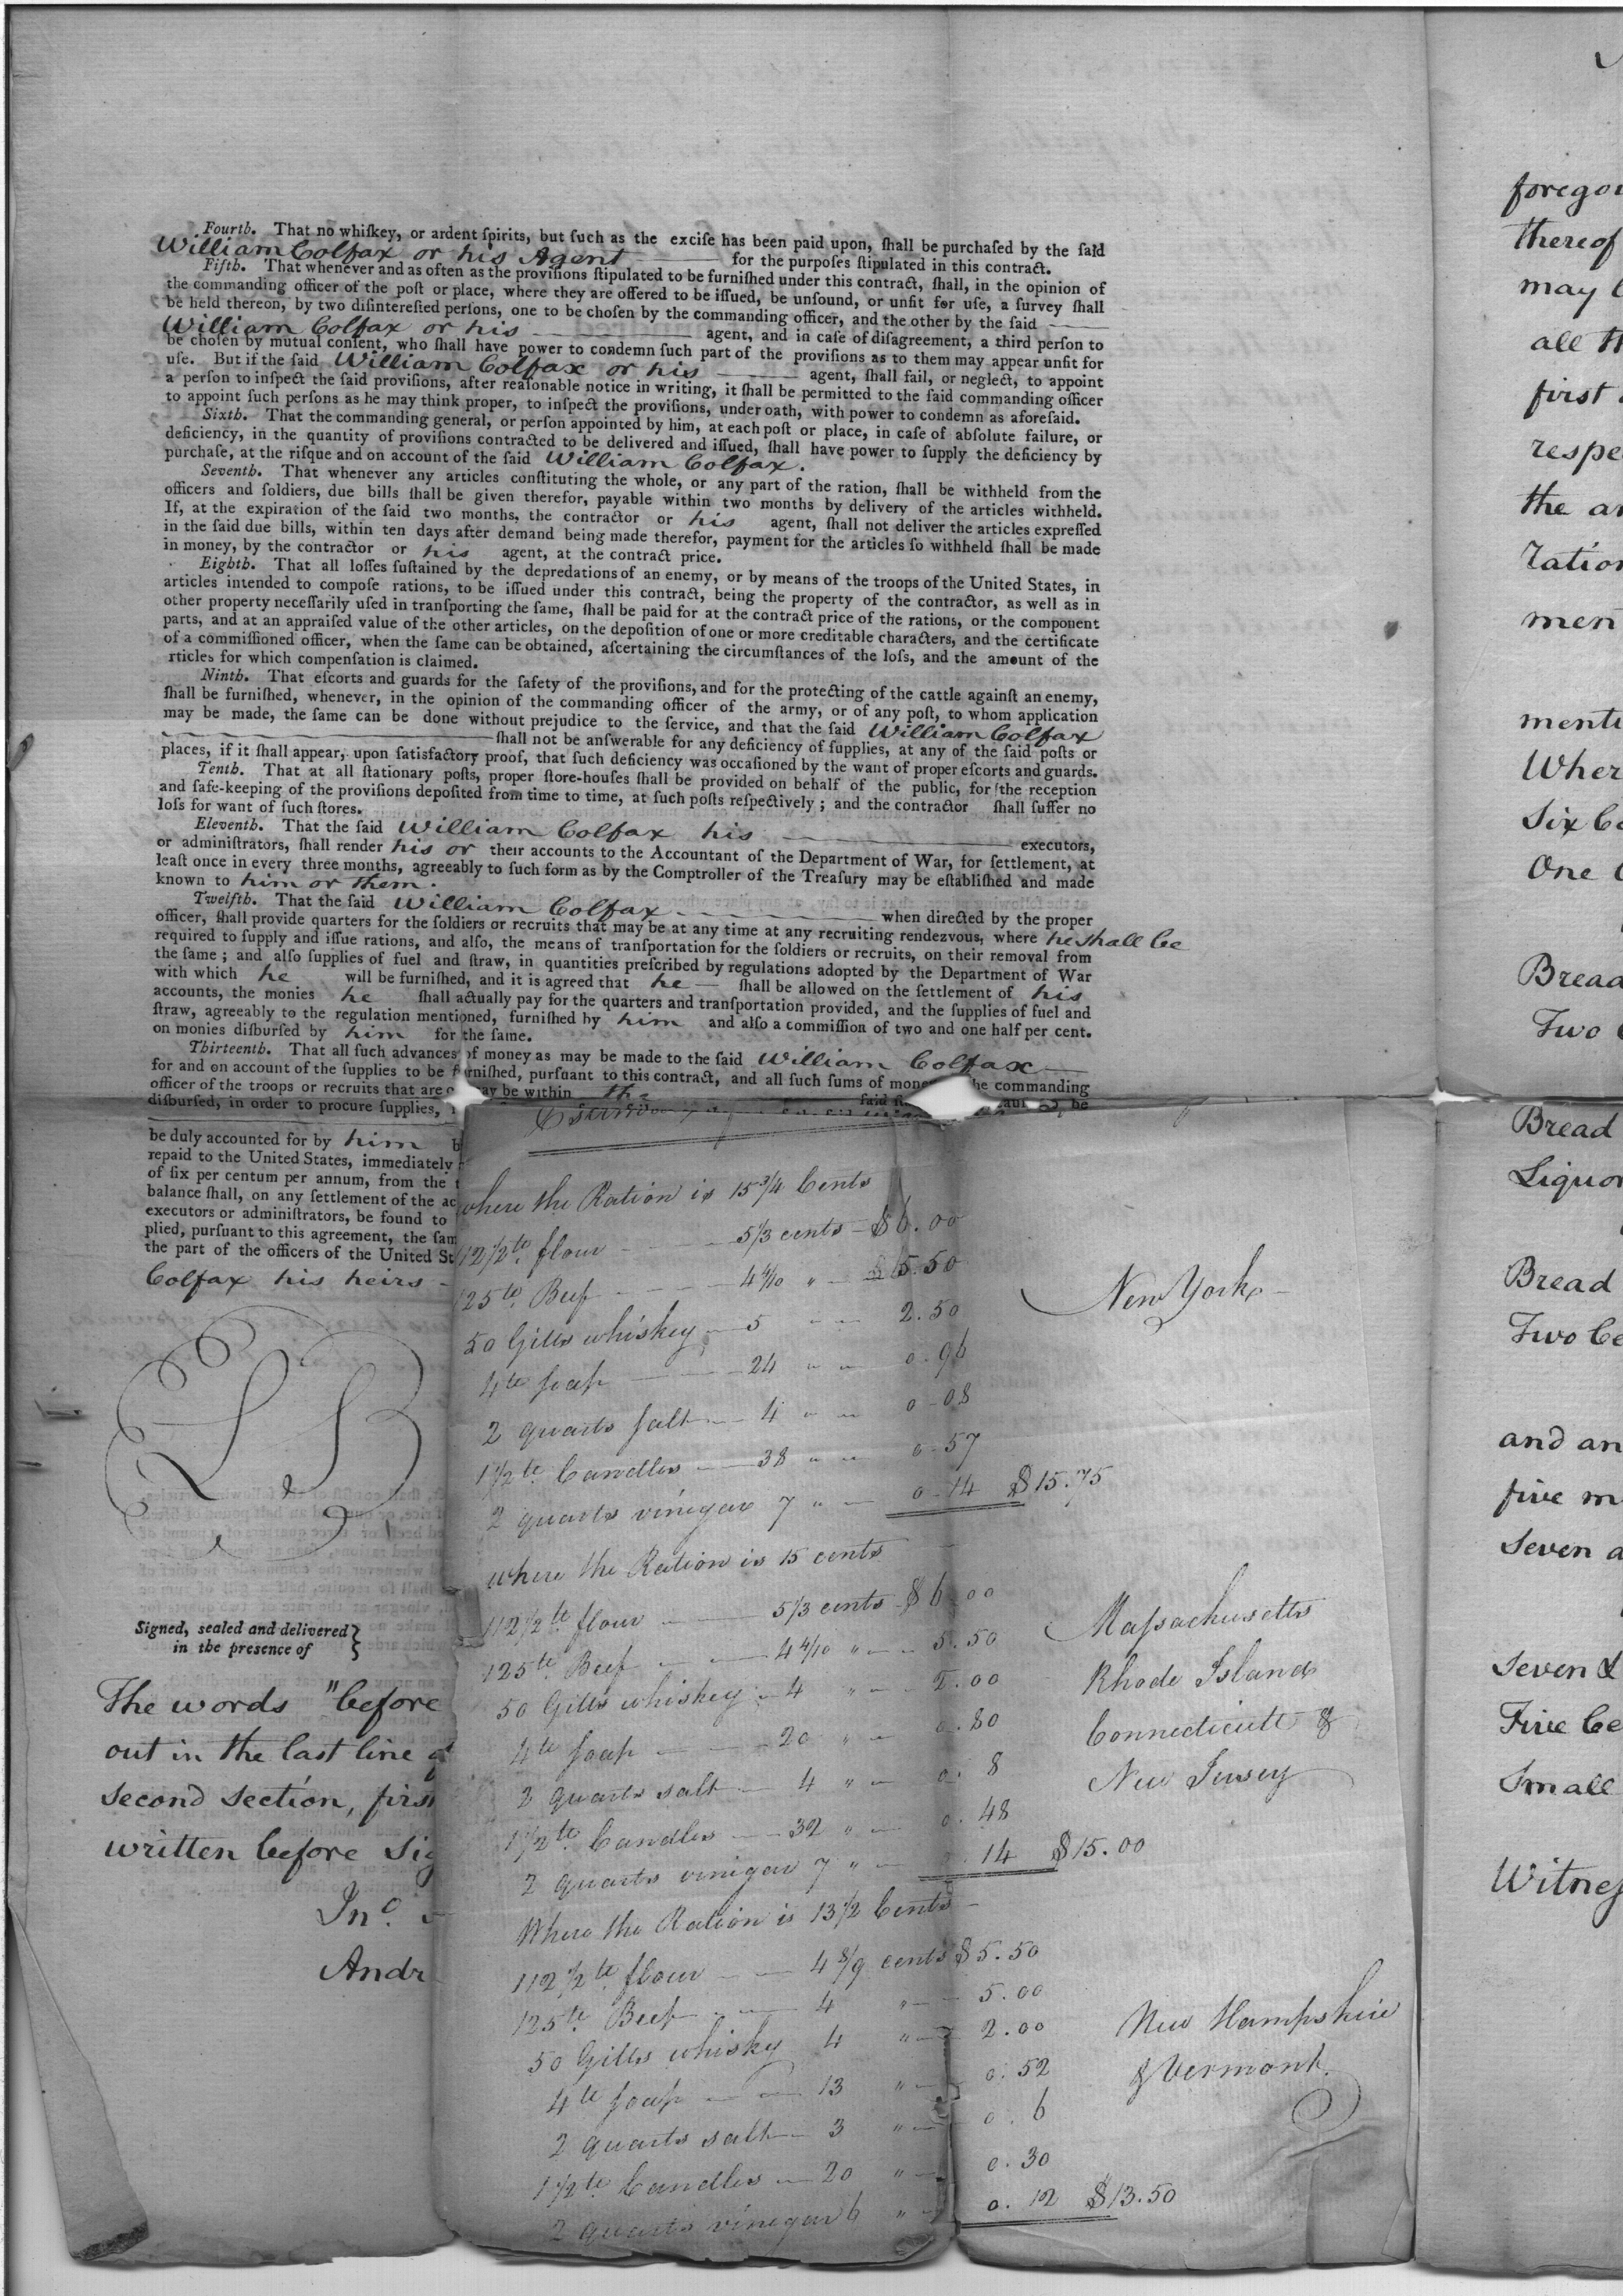 Fourth. That no whiſkey, or ardent ſpirits, but ſuch as the exciſe has been paid upon, ſhall be purchaſed by the ſaid
William Colfax or his Agent for the purpoſes ſtipulated in this contract.
Fifth. That whenever and as often as the proviſions ſtipulated to be furniſhed under this contract, ſhall, in the opinion of
the commanding officer of the poſt or place, where they are offered to be iſſued, be unſound, or unfit for uſe, a ſurvey ſhall
be held thereon, by two diſintereſted perſons, one to be choſen by the commanding officer, and the other by the ſaid
William Colfax or his agent, and in caſe of diſagreement, a third perſon to
be choſen by mutual conſent, who ſhall have power to condemn ſuch part of the proviſions as to them may appear unfit for
uſe. But if the ſaid William Colfax or his agent, ſhall fail, or neglect, to appoint
a perſon to inſpect the ſaid proviſions, after reaſonable notice in writing, it ſhall be permitted to the ſaid commanding officer
to appoint ſuch perſons as he may think proper, to inſpect the proviſions, under oath, with power to condemn as aforeſaid.
Sixth. That the commanding general, or perſon appointed by him, at each poſt or place, in caſe of abſolute failure, or
deficiency, in the quantity of proviſions contracted to be delivered and iſſued, ſhall have power to ſupply the deficiency by
purchaſe, at the riſque and on account of the ſaid William Colfax.
Seventh. That whenever any articles conſtituting the whole, or any part of the ration, ſhall be withheld from the
officers and ſoldiers, due bills ſhall be given therefor, payable within two months by delivery of the articles withheld.
If, at the expiration of the ſaid two months, the contractor or his agent, ſhall not deliver the articles expreſſed
in the ſaid due bills, within ten days after demand being made therefor, payment for the articles ſo withheld ſhall be made
in money, by the contractor or his agent, at the contract price.
Eighth. That all loſſes ſuſtained by the depredations of an enemy, or by means of the troops of the United States, in
articles intended to compoſe rations, to be iſſued under this contract, being the property of the contractor, as well as in
other property neceſſarily uſed in tranſporting the ſame, ſhall be paid for at the contract price of the rations, or the component
parts, and at an appraiſed value of the other articles, on the depoſition of one or more creditable characters, and the certificate
of a commiſſioned officer, when the ſame can be obtained, aſcertaining the circumſtances of the loſs, and the amount of the
rticles for which compenſation is claimed.
Ninth. That eſcorts and guards for the ſafety of the proviſions, and for the protecting of the cattle againſt an enemy,
ſhall be furniſhed, whenever, in the opinion of the commanding officer of the army, or of any poſt, to whom application
may be made, the ſame can be done without prejudice to the ſervice, and that the ſaid William Colfax
ſhall not be anſwerable for any deficiency of ſupplies, at any of the ſaid poſts or
places, if it ſhall appear, upon ſatisfactory proof, that ſuch deficiency was occaſioned by the want of proper eſcorts and guards.
Tenth. That at all ſtationary poſts, proper ſtore-houſes ſhall be provided on behalf of the public, for the reception
and ſafe-keeping of the proviſions depoſited from time to time, at ſuch poſts reſpectively ; and the contractor ſhall ſuffer no
loſs for want of ſuch ſtores.
Eleventh. That the ſaid William Colfax his executors,
or adminiſtrators, ſhall render his or their accounts to the Accountant of the Department of War, for ſettlement, at
leaſt once in every three months, agreeably to ſuch form as by the Comptroller of the Treaſury may be eſtabliſhed and made
known to him or them.
Twelfth. That the ſaid William Colfax when directed by the proper
officer, ſhall provide quarters for the ſoldiers or recruits that may be at any time at any recruiting rendezvous, where he shall be
required to ſupply and iſſue rations, and alſo, the means of tranſportation for the ſoldiers or recruits, on their removal from
the ſame ; and alſo ſupplies of fuel and ſtraw, in quantities preſcribed by regulations adopted by the Department of War
with which he will be furniſhed, and it is agreed that he — ſhall be allowed on the ſettlement of his
accounts, the monies he ſhall actually pay for the quarters and tranſportation provided, and the ſupplies of fuel and
ſtraw, agreeably to the regulation mentioned, furniſhed by him and alſo a commiſſion of two and one half per cent.
on monies diſburſed by him for the ſame.
Thirteenth. That all ſuch advances of money as may be made to the ſaid William Colfax
for and on account of the ſupplies to be furniſhed, purſuant to this contract, and all ſuch ſums of mone he commanding
officer of the troops or recruits that are may be within the ſaid
diſburſed, in order to procure ſupplies, be
be duly accounted for by him
repaid to the United States, immediately
of ſix per centum per annum, from the
balance ſhall, on any ſettlement of the ac
executors or adminiſtrators, be found to
plied, purſuant to this agreement, the ſam
the part of the officers of the United St
Colfax his heirs
LS
Signed, sealed and delivered
in the presence of
The words "before
out in the last line
second section, firs
written before Sig
Jno.
Andr
where the Ration is 15 3/4 Cents
112 1/2 lb. flour 5 1/3 cents — $6.00
125 lb. Beef 4 4/10 " $5.50
50 Gills whiskey 5 " 2.50
4 lb soap 24 " 0.96
2 quarts salt 4 " 0-08
1 1/2 lb. Candles 38 " 0-57
2 quarts vinegar 7 " 0-14 $15.75
New York
where the Ration is 15 cents
112 1/2 lb flour 5 1/3 cents $6.00
125 lb. Beef 4 4/10 " 5.50
50 Gills whiskey 4 " 2.00
4 lb soap 20 " 0.80
2 quarts salt 4 " 0. 8
1 1/2 lb. Candles 32 " 0. 48
2 quarts vinegar 7 " 0. 14 $15.00
Massachusetts
Rhode Island
Connecticutt &
New Jersey
Where the Ration is 13 1/2 Cents
112 1/2 lb flour 4 8/9 cents $5.50
125 lb. Beef 4 " 5.00
50 Gills whisky 4 " 2.00
4 lb soap 13 " 0.52
2 quarts salt 3 " 0. 6
1 1/2 lb. Candles 20 " 0. 30
2 quarts vinegar 6 " 0. 12 $13.50
New Hampshire
& Vermont.
foregoi
thereof
may b
all th
first
respe
the ar
ration
men
menti
Wher
Six Ce
One C
Bread
Two C
Bread
Liquor
Bread
Two Ce
and an
five m
seven a
Seven &
Five Ce
Small
Witnes